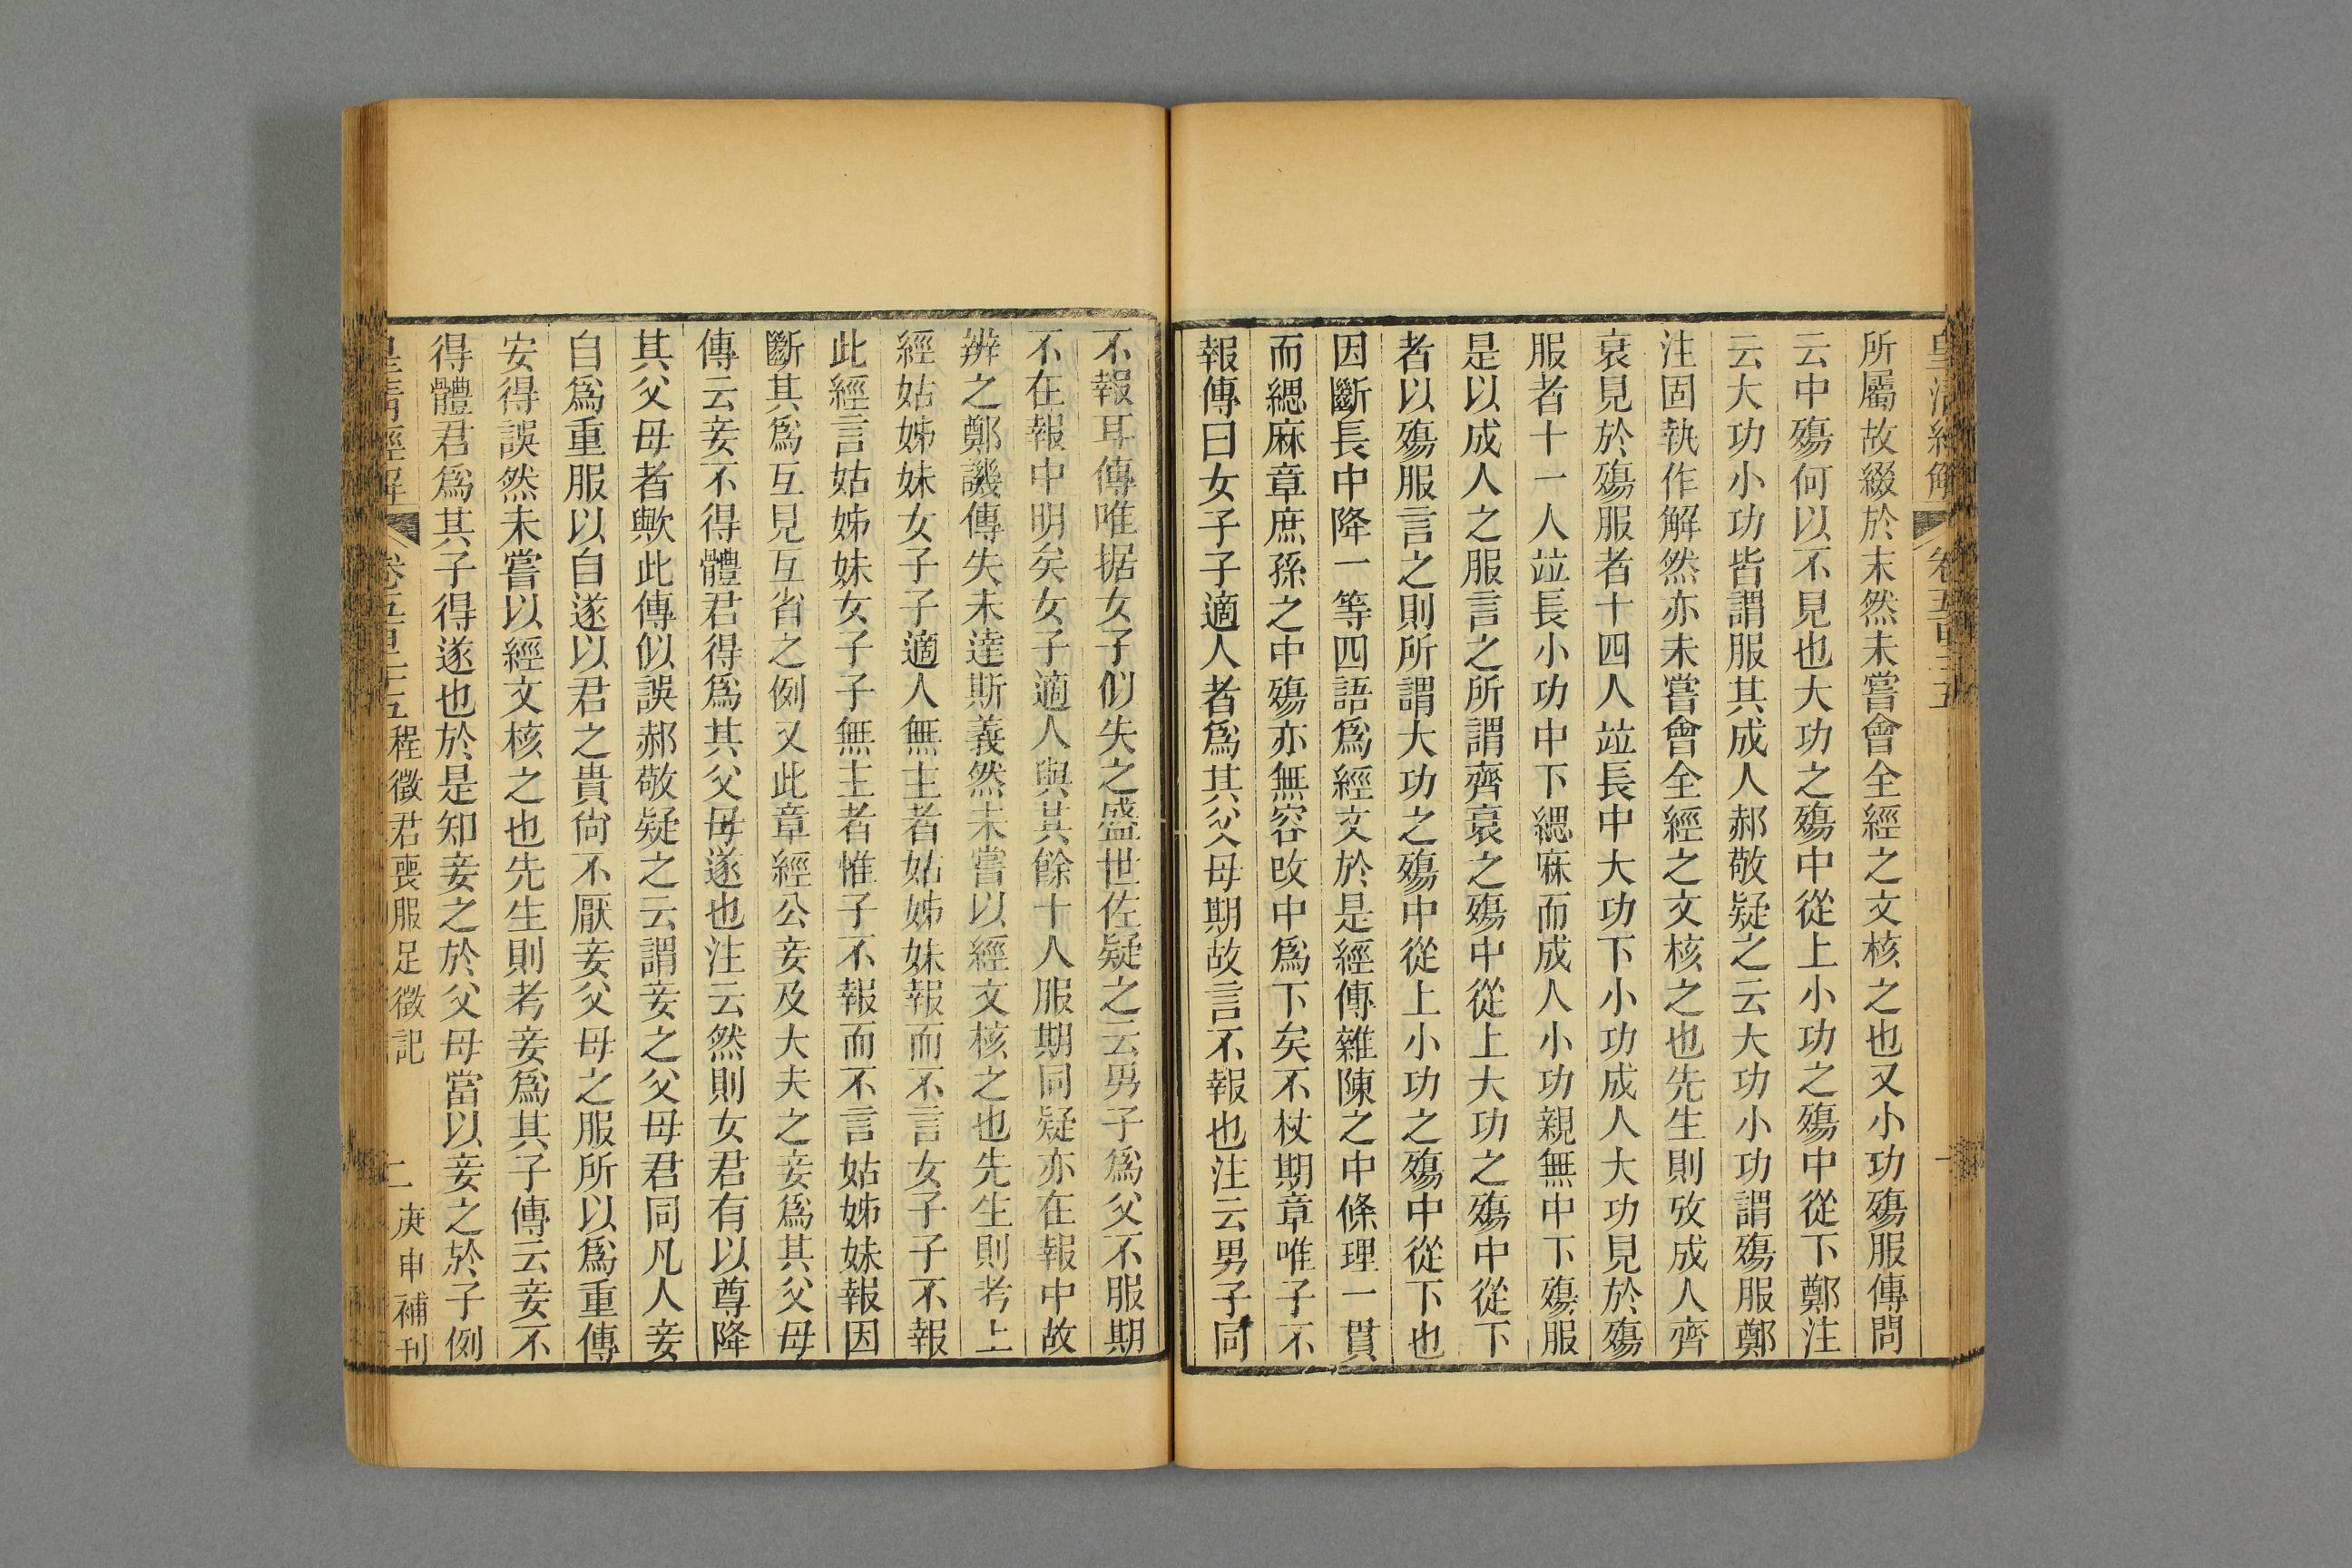 皇清經解 卷五百二十五 一
所屬故綴於末然未嘗會全經之文核之也又小功殤服傳問
云中殤何以不見也大功之殤中從上小功之殤中從下鄭注
云大功小功皆謂服其成人郝敬疑之云大功小功謂殤服鄭
注固執作解然亦未嘗會全經之文核之也先生則攷成人齊
衰見於殤服者十四人竝長中大功下小功成人大功見於殤
服者十一人竝長小功中下緦麻而成人小功親無中下殤服
是以成人之服言之所謂齊衰之殤中從上大功之殤中從下
者以殤服言之則所謂大功之殤中從上小功之殤中從下也
因斷長中降一等四語爲經文於是經傳雜陳之中條理一貫
而緦麻章庶孫之中殤亦無容改中爲下矣不杖期章唯子不
報傳曰女子子適人者爲其父母期故言不報也注云男子同
不報耳傳唯据女子似失之盛世佐疑之云男子爲父不服期
不在報中明矣女子適人與其餘十人服期同疑亦在報中故
辨之鄭譏傳失未達斯義然未嘗以經文核之也先生則考上
經姑姊妹女子子適人無主者姑姊妹報而不言女子子不報
此經言姑姊妹女子子無主者惟子不報而不言姑姊妹報因
斷其爲互見互省之例又此章經公妾及大夫之妾爲其父母
傳云妾不得體君得爲其父母遂也注云然則女君有以尊降
其父母者歟此傳似誤郝敬疑之云謂妾之父母君同凡人妾
自爲重服以自遂以君之貴尙不厭妾父母之服所以爲重傳
安得誤然未嘗以經文核之也先生則考妾爲其子傳云妾不
得體君爲其子得遂也於是知妾之於父母當以妾之於子例
皇清經解 卷五百二十五 程徵君喪服足徵記 二 庚申補刊